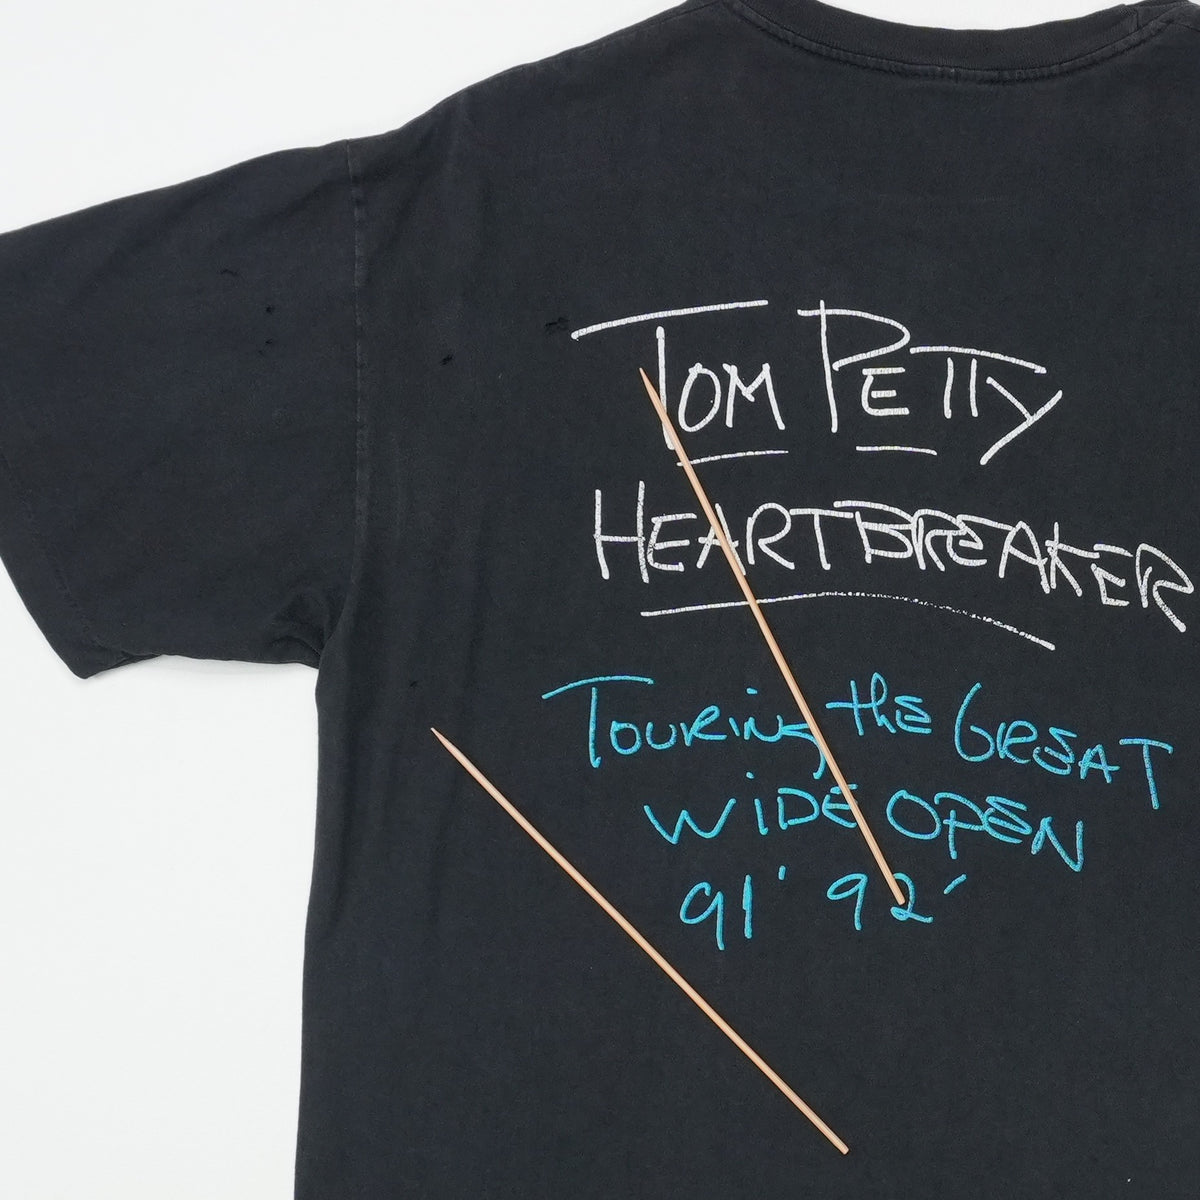 TOM PETTY
HEARTBREAKER
TOURING the GREAT
WIDE OPEN
91' 92'